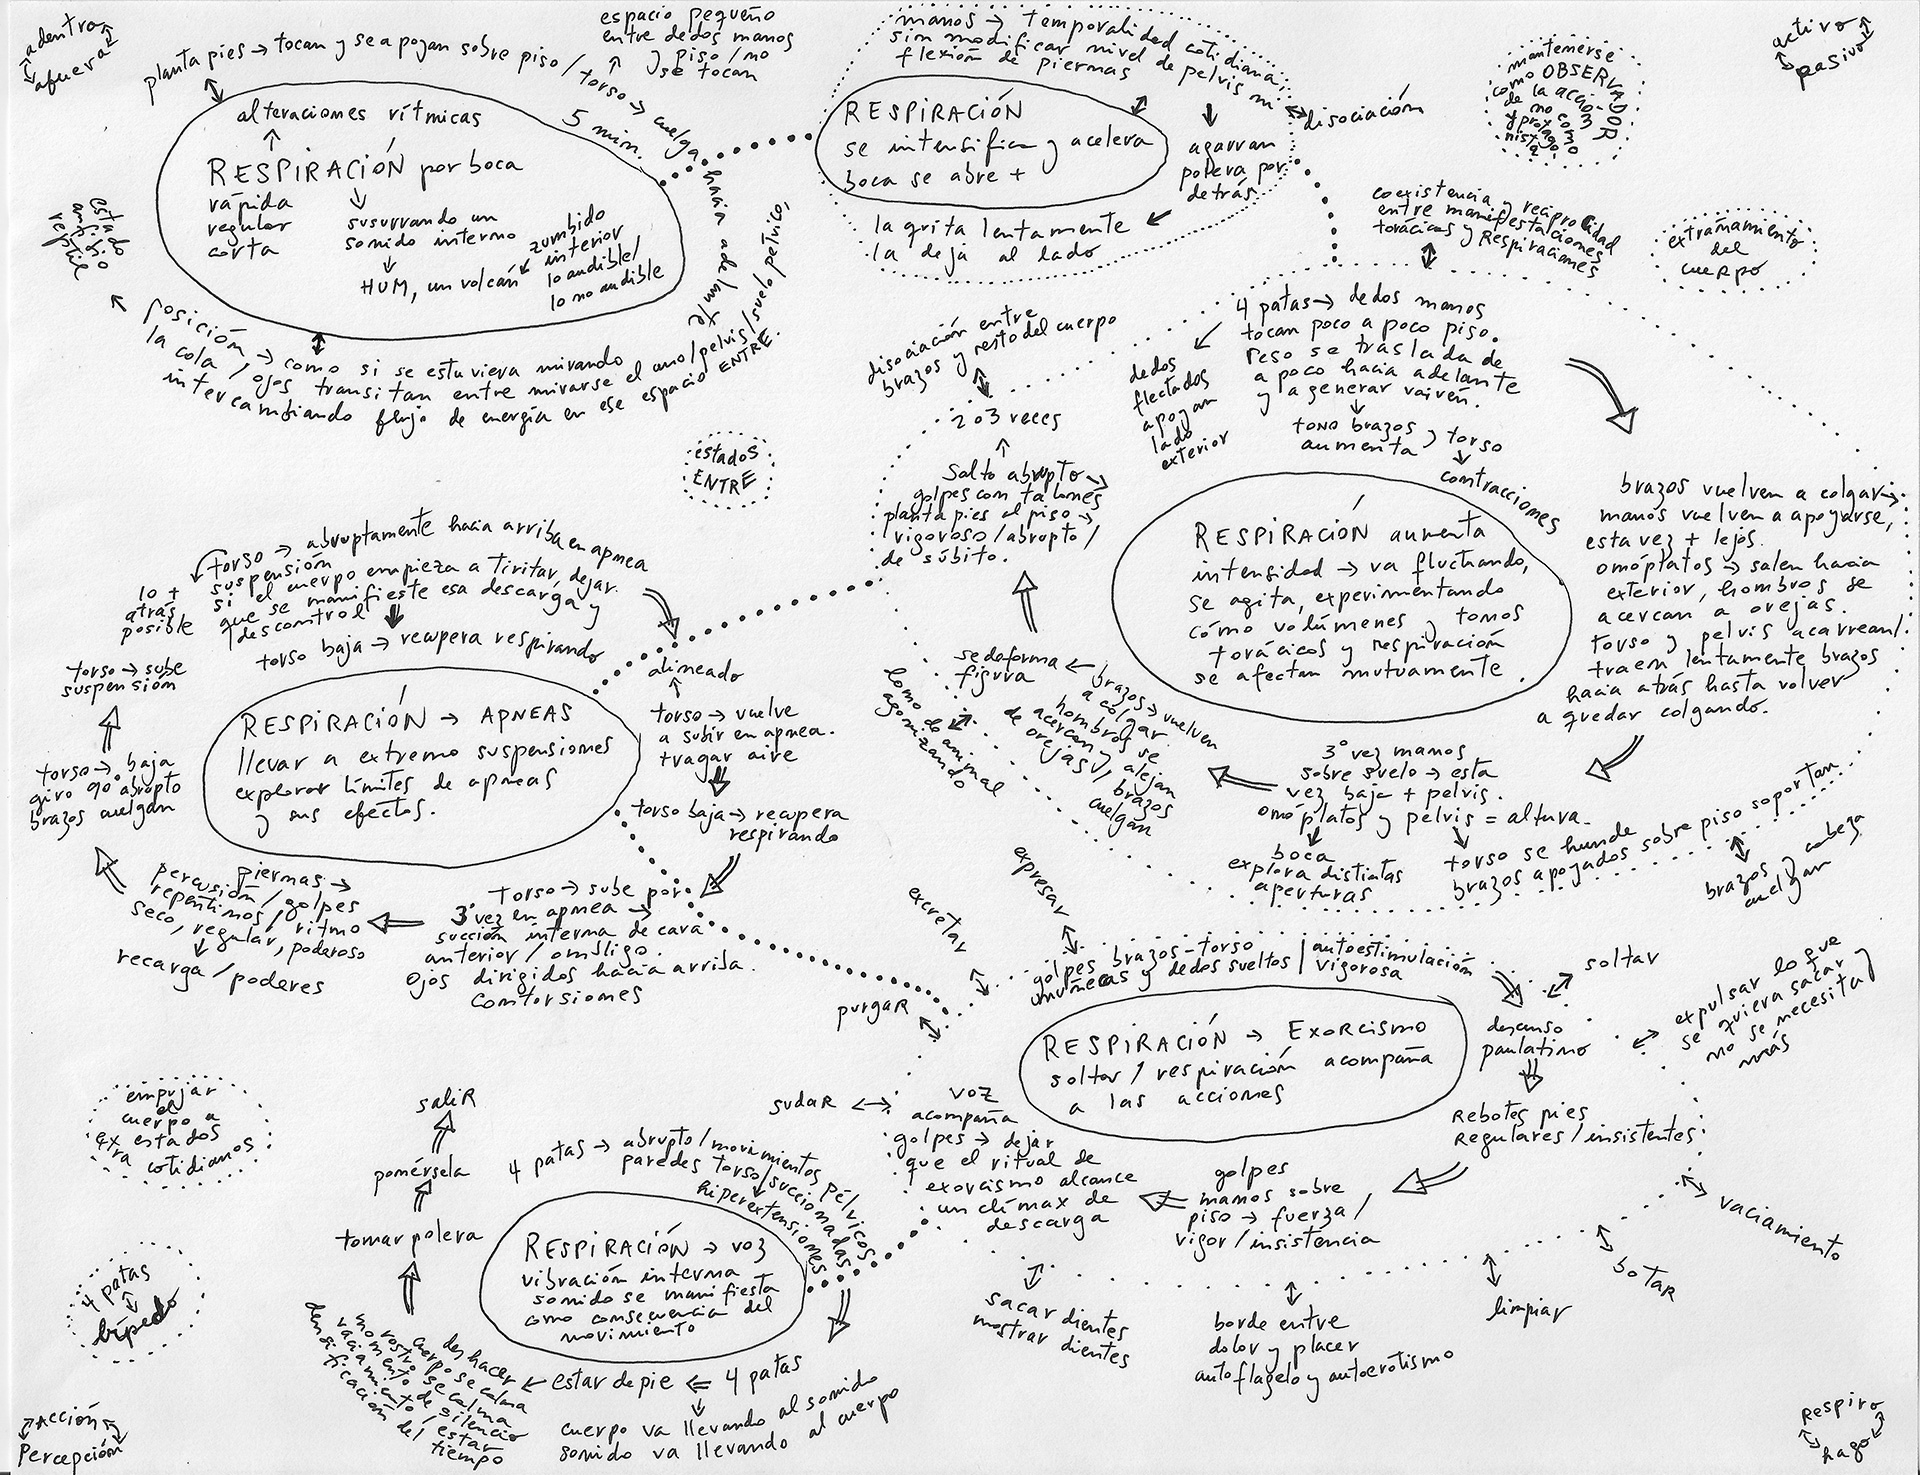 adentro
afuera
planta pies → tocan y se apoyan sobre piso / torso → cuelga hacia adelante
5 min.
espacio pequeño
entre dedos manos
y piso / no
se tocan
alteraciones rítmicas
RESPIRACIÓN por boca
rápida
regular
corta
susurrando un
sonido interno
HUM, un volcán
zumbido
interior
lo audible/
lo no audible
estado
anfibio
reptil
posición → como si se estuviera mirando
la cola, ojos transitan entre mirarse el ano/pelvis/suelo pélvico,
intercambiando flujo de energía en ese espacio ENTRE.
manos → temporalidad cotidiana,
sin modificar nivel de pelvis ni
flexión de piernas
RESPIRACIÓN
se intensifica y acelera
boca se abre +
agarran
polera por
detrás
la quita lentamente
la deja al lado
disociación
activo
pasivo
mantenerse
como OBSERVADOR
de la acción
y no como
protagonista
coexistencia y reciprocidad
entre manifestaciones
torácicas y Respiraciones
extrañamiento
del
cuerpo
disociación entre
brazos y resto del cuerpo
2 o 3 veces
Salto abrupto →
golpes con talones
planta pies al piso →
vigoroso/abrupto/
de súbito.
4 patas → dedos manos
tocan poco a poco piso.
Peso se traslada de
a poco hacia adelante
y a generar vaivén.
dedos
flectados
apoyan
lado
exterior
tono brazos y torso
aumenta
contracciones
RESPIRACIÓN aumenta
intensidad → va fluctuando,
se agita, experimentando
cómo volúmenes y tonos
torácicos y respiración
se afectan mutuamente.
brazos vuelven a colgar →
manos vuelven a apoyarse,
esta vez + lejos.
omóplatos → salen hacia
exterior, hombros se
acercan a orejas.
torso y pelvis acarrean/
traen lentamente brazos
hacia atrás hasta volver
a quedar colgando.
3° vez manos
sobre suelo → esta
vez baja + pelvis.
omóplatos y pelvis = altura.
boca
explora distintas
aperturas
torso se hunde
brazos apoyados sobre piso soportan
brazos y cabeza
cuelgan
brazos → vuelven
a colgar.
hombros se
acercan y alejan
de orejas, brazos
cuelgan
se deforma
figura
lomo de animal
agonizando
estados
ENTRE
torso → abruptamente hacia arriba en apnea
suspensión
si el cuerpo empieza a tiritar, dejar
que se manifieste esa descarga y
descontrol
lo +
atrás
posible
torso baja → recupera respirando
torso → sube
suspensión
RESPIRACIÓN → APNEAS
llevar a extremo suspensiones
explorar límites de apneas
y sus efectos.
alineado
torso → vuelve
a subir en apnea.
tragar aire
torso baja → recupera
respirando
torso → sube por
3° vez en apnea →
succión interna de cara
anterior / ombligo.
Ojos dirigidos hacia arriba.
Contorsiones
piernas →
percusión / golpes
repentinos, ritmo
seco, regular, poderoso
recarga / poderes
torso → baja
giro 90° abrupto
brazos cuelgan
expresar
excretar
purgaR
sudaR
golpes brazos-torso
muñecas y dedos sueltos | autoestimulación
vigorosa
soltar
RESPIRACIÓN → ExoRcismo
soltar / respiración acompaña
a las acciones
descanso
paulatino
expulsar lo que
se quiera sacar y
no se necesita
más
Rebotes pies
Regulares / insistentes
golpes
manos sobre
piso → fuerza /
vigor / insistencia
voz
acompaña
golpes → dejar
que el ritual de
exorcismo alcance
un clímax de
descarga
vaciamiento
botaR
limpiar
borde entre
dolor y placer
autoflagelo y autoerotismo
sacar dientes
mostrar dientes
empujar
el
cuerpo a
estados
extra cotidianos
4 patas
bípedo
saliR
ponérsela
tomar polera
4 patas → abrupto / movimientos pélvicos
paredes torso / succionadas
hiperextensiones
RESPIRACIÓN → voz
vibración interna
sonido se manifiesta
como consecuencia del
movimiento
4 patas
cuerpo va llevando al sonido
sonido va llevando al cuerpo
estar de pie
deshacer
cuerpo se calma
rostro se calma
momento de silencio
vaciamiento / estar
densificación del tiempo
Acción
Percepción
Respiro
hago